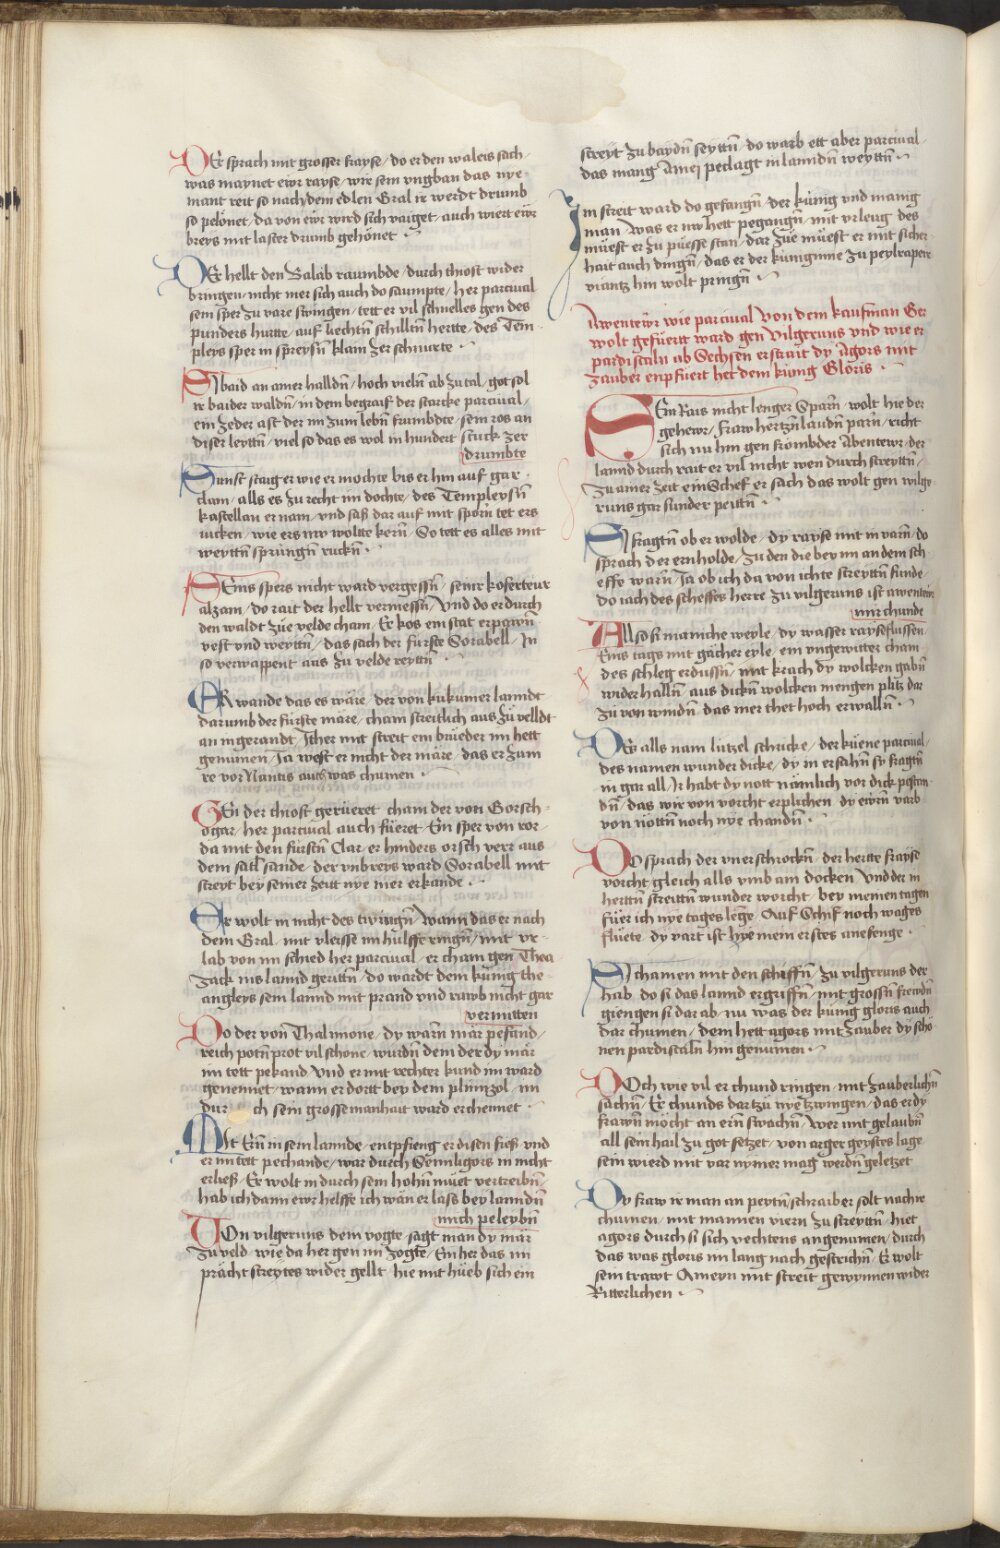 Er sprach mit grosser frayse / do er den waleis sach /
was maynet ewr rayse / wie sein vngban das nye
mant reit so nach dem edlen Gral ir werdt drumb
so pelönet / da von ewr wird sich naiget / auch wiert ewr
breys mit laster drumb gehönet
Er hellt den Salab raumbde / durch thiost wider
bringen / nicht mer sich auch do saumpte / her parcival
sein sper zu vare swingen / tett er vil schnelles gen des
punders hurtte / auf liechtn̄ schilltn̄ hertte / des Tem
pleys sper in spreysn̄ klain zerschnurte
Si baid an ainer halldn̄ / hoch vieln̄ ab zu tal / got sol
ir baider waldn̄ / in dem begraif der starcke parcival /
ein zeder ast der im zum lebn̄ frumbdte / sein ros an
diser leyttn̄ / viel so das es wol in hundert stuck zer
drumbte
Sanft staig er wie er mochte bis er hin auf gar
cham / alls es zu recht im dochte / des Templeysn̄
kastellan er nam / vnd saß dar auf mit sporn̄ tet ers
rucken / wie ers nw woltte kern̄ / So tett es alles mit
weyttn̄ sprüngn̄ ruckn̄
Seins spers nicht ward vergessn̄ / seinr koferteur
alzam / do rait der hellt vermessn̄ / Vnd do er durch
den waldt züe velde cham / Er kos ein stat erpawn̄
vest vnd weyttn̄ / das sach der furste Sorabell / In
so verwappent aus zu velde reyttn̄
Er wande das es wäre / der von kukumer lanndt
darumb der fürste märe / cham streitlich aus zü velldt
an in gerandt / Ither mit streit ein brüeder im hett
genumen / Ja west er nicht der märe / das er zum
re vor Nantis auch was chumen
Gen der thiost gerüeret / cham der von Gorsch
ogar / her parcival auch füeret / Ein sper von vor
da mit den fursten Clar / er hinders orsch verr aus
dem satl sande / der vnbreys ward Sorabell mit
streyt bey seiner zeitt nye mer erkande
Er wolt in nicht des twingn̄ / Wann das er nach
dem Gral / mit vleisse im hülffe ringn̄ / mit vr
lab von im schied her parcival / er cham gen Thea
zack ins lannd gerittn̄ / do wardt dem künig the
angleys sein lannd mit prand vnd rawb nicht gar
vermitten
Do der von Thalimone / dy warn̄ mär pefand /
reich potn̄ prot vil schone / wurdn̄ dem der dy mär
im tett pekand / Vnd er mit rechter kund im ward
genennet / wann er dortt bey dem plimizol / im
dur ch sein grosse manhait ward erchennet
Mit Ern̄ in sein lannde / entpfieng er disen sueß vnd
er im tett pechande / war durch Senniligors in nicht
erließ / Er wolt in durch sein hohn̄ müet vertreibn̄ /
hab ich dann ewr helffe ich wän er lass bey lanndn̄
mich peleybn̄
Von vilgeruns dem vogte / sagt man dy mär
zu veld / wie da her gen im zogte / Ein her das im
prächt streytes wider gellt / hie mit hüeb sich ein
streyt zu baydn̄ seyttn̄ / do warb ett aber parcival /
das mang Amej peclagt in lanndn̄ weyttn̄
Im streit ward do gefangn̄ / der künig vnd manig
man / was er nw hett pegangn̄ / mit vrleug / des
müest er zu puesse stan / dar züe müest er mit sicher
hait auch dingn̄ / das er der küniginne zu peylrapere
viantz hin wolt pringn̄
Awentewr wie parcival von dem kaufman Ger
wolt gefüertt ward gen Vilgeruns vnd wie er
pardiscaln ab Sechsen erstrait dy Agors mit
zauber enpfüert het dem künig Gloris
Sein Rais nicht lenger Sparn̄ / wolt hie der
gehewr / fraw hertzn̄ laudn̄ parn̄ / richt
sich nu hin gen frömbder Abentewr / der
lannd durch rait er vil nicht wen durch streyttn̄ /
zu ainer zeit ein Schef er sach das wolt gen vilge
runs gar sunder peittn̄
Si fragtn̄ ob er wolde / dy rayse mit in varn̄ / do
sprach der ernholde / zu den die bey im an dem sch
effe warn̄ / Ja ob ich da von ichte streyttn̄ funde /
do iach des scheffes herre zu vilgeruns ist awenteur
mir chunde
Allso si maniche weyle / dy wasser rayse flussen /
Eins tags mit gächer eyle / ein vngewitter cham
des schleg erdussn̄ / mit krach dy wolcken gabn̄
widerhalln̄ / aus dickn̄ wolcken mengen plitz dar
zü von winden das mer thet hoch erwalln̄
Des alls nam lützel schricke / der küene parcival /
des namen wunder dicke / dy in ersahn̄ sy fragtn̄
in gar all / Ir habt dy nott nämlich vor dick pestan
dn̄ / das wir von vorcht erplichen / dy ewrn̄ varb
von nöttn̄ noch nye chandn̄
Do sprach der vnerschrockn̄ / der hertte frayse
vorcht gleich alls vmb ain docken / Vnd der in
herttn̄ streittn̄ wunder worcht / bey meinen tagen
füer ich nye tages lenge / Auf Schif noch wages
fluete / dy vart ist hye mein erstes anefenge
Si chamen mit den schiffn̄ / zu vilgeruns der
hab / do si das lannd ergriffn̄ / mit grossn̄ frewdn̄
giengen si dar ab / nu was der künig gloris auch
dar chumen / dem hett agors mit zauber dy schö
nen pardiscaln hin genumen
Doch wie vil er chund ringen / mit zauberlichn̄
sachn̄ / Er chunds dartzü nye tzwingen / das er dy
frawn̄ möcht an ern̄ swachn̄ / Wer mit gelaubn̄
all sein hail zu got setzet / von arger geystes lage
sein wierd mit var nymer mag werdn̄ geletzet
Dy fraw ir man an peytn̄ / schraiber solt nach ir
chumen / mit mannen viern̄ zu streyttn̄ / hiet
agors durch si sich vechtens angenumen / durch
das was gloris im lang nach gestrichn̄ / Er wolt
sein trawt Ameyn mit streit gewynnen wider
Ritterlichen